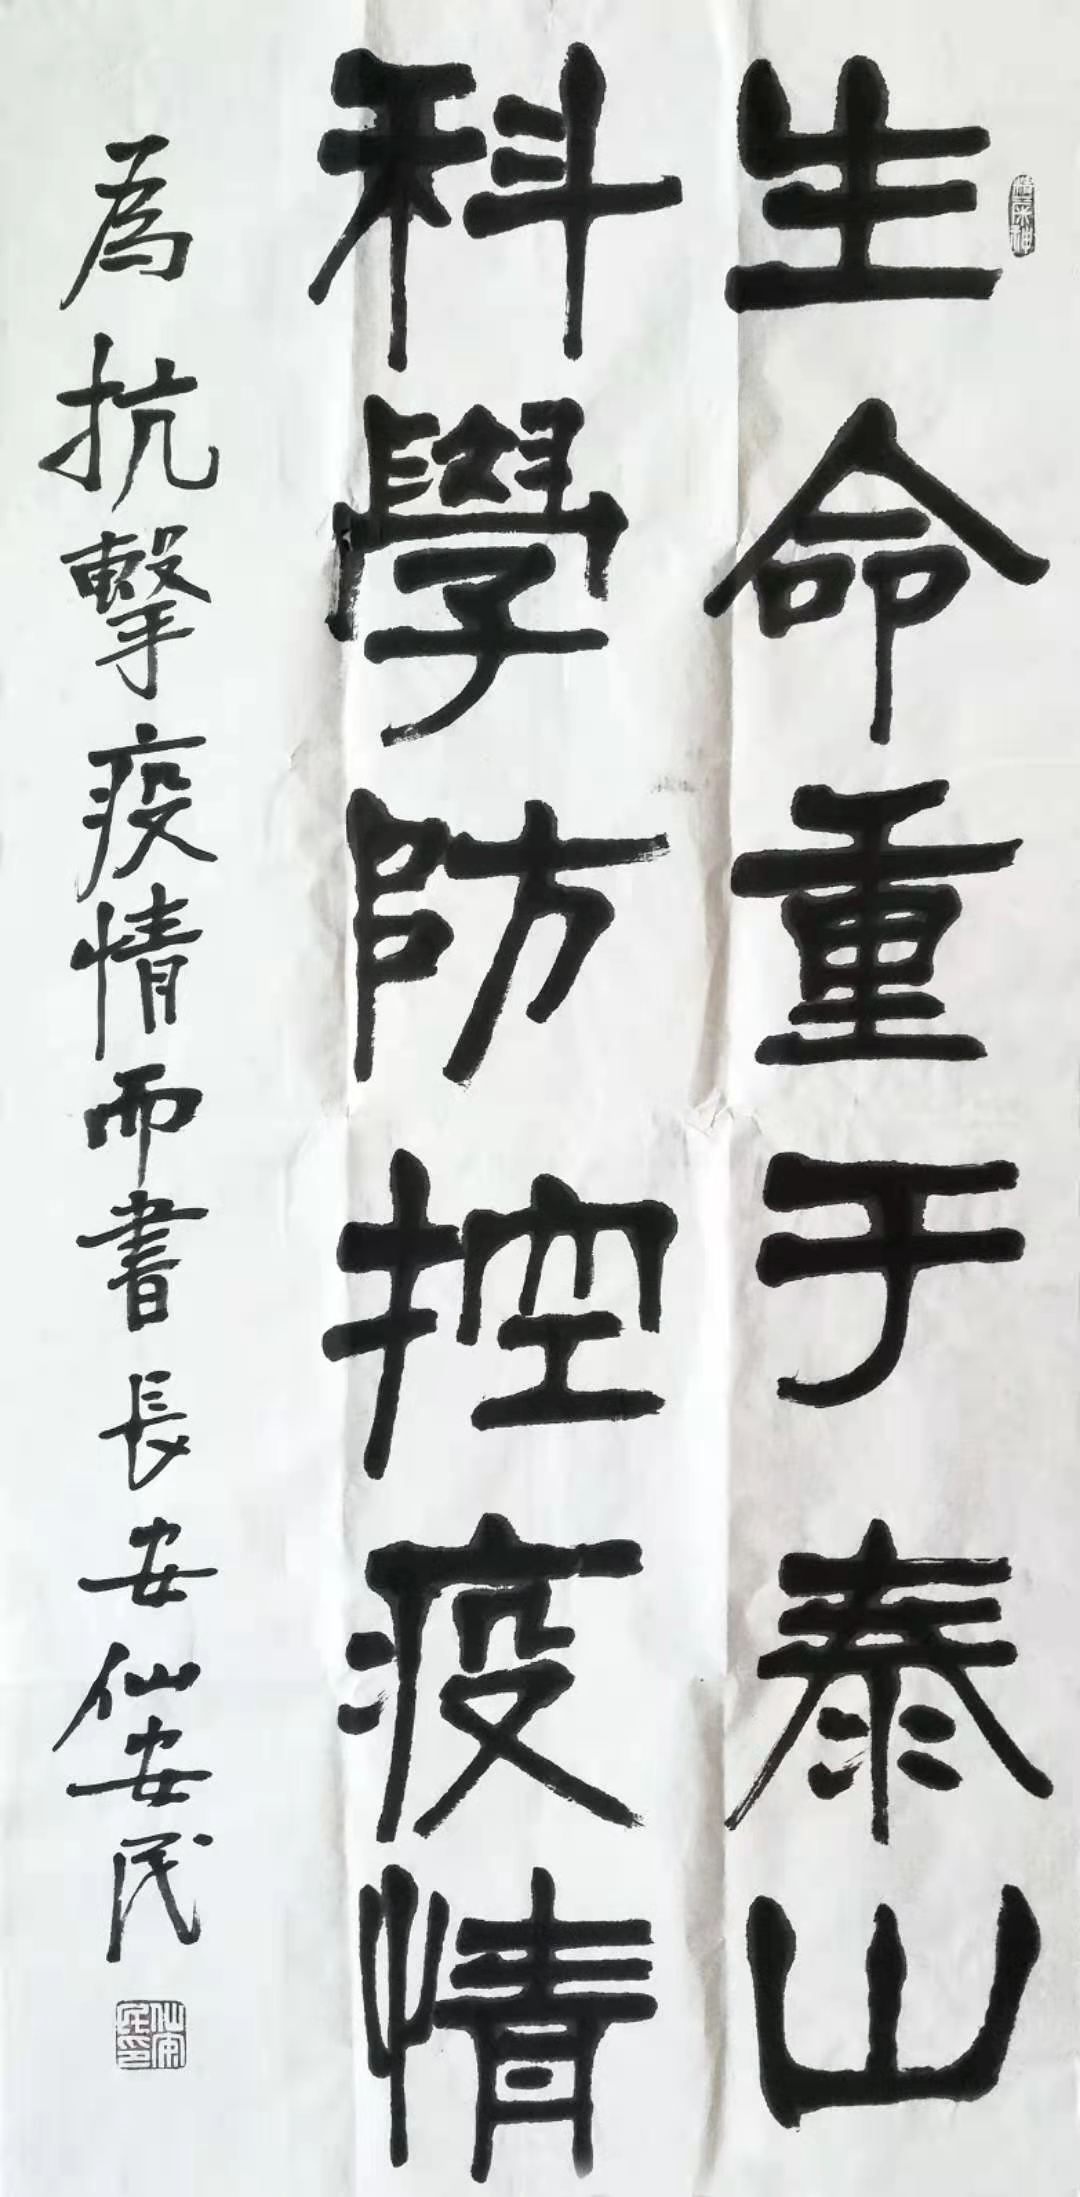 生命重于泰山
科學防控疫情
為抗擊疫情而書長安仙安民
仙安民印